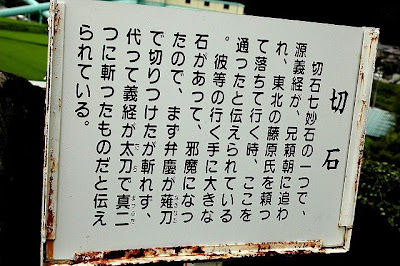 切石
切石七妙石の一つで、
源義経が、兄頼朝に追わ
れ、東北の藤原氏を頼っ
て落ちて行く時、ここを
通ったと伝えられている
。彼等の行く手に大きな
石があって、邪魔になっ
たので、まず弁慶が薙刀
で切りつけたが斬れず、
代って義経が太刀で真二
つに斬ったものだと伝え
られている。